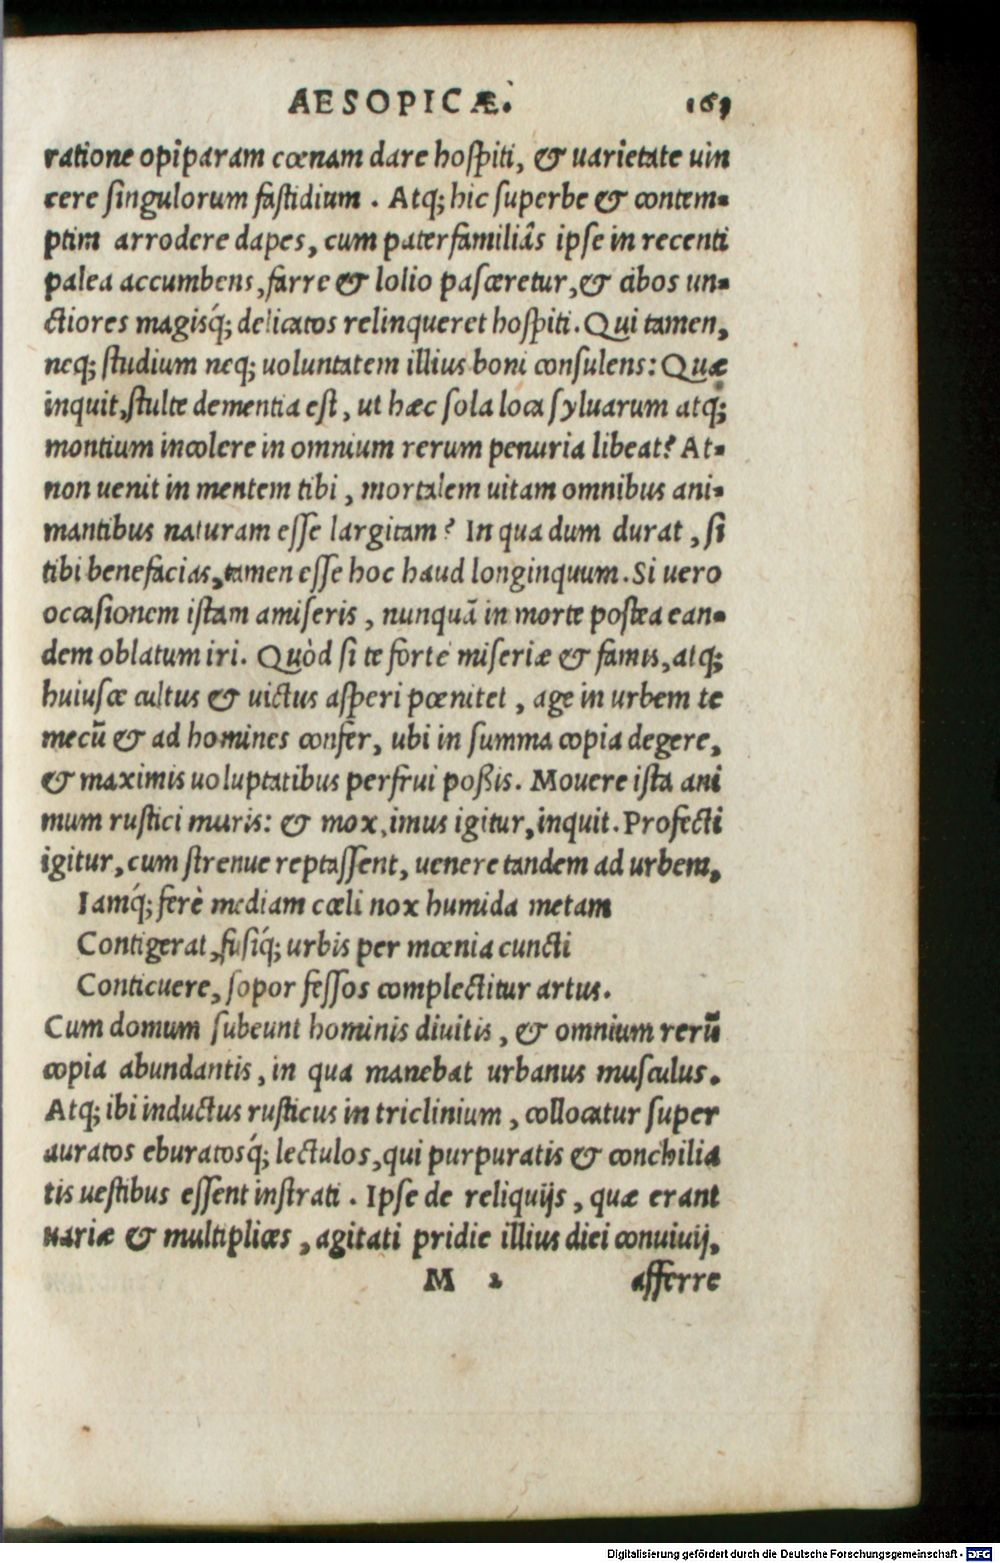 AESOPICÆ. 169
ratione opiparam cœnam dare hoſpiti, & uarietate uin
cere ſingulorum faſtidium. Atq; hic ſuperbe & contem-
ptim arrodere dapes, cum paterfamiliâs ipſe in recenti
palea accumbens, farre & lolio paſceretur, & cibos un-
ctiores magisq́; delicatos relinqueret hoſpiti. Qui tamen,
neq; ſtudium neq; uoluntatem illius boni conſulens: Quæ
inquit, ſtulte dementia eſt, ut hæc ſola loca ſyluarum atq;
montium incolere in omnium rerum penuria libeat? At-
non uenit in mentem tibi, mortalem uitam omnibus ani-
mantibus naturam eſſe largitam? In qua dum durat, ſi
tibi benefacias, tamen eſſe hoc haud longinquum. Si uero
occaſionem iſtam amiſeris, nunquā in morte poſtea ean-
dem oblatum iri. Quòd ſi te forte miſeriæ & famis, atq;
huiuſce cultus & uictus aſperi pœnitet, age in urbem te
mecū & ad homines confer, ubi in ſumma copia degere,
& maximis uoluptatibus perfrui poßis. Mouere iſta ani
mum ruſtici muris: & mox, imus igitur, inquit. Profecti
igitur, cum ſtrenue reptaſſent, uenere tandem ad urbem,
Iamq́; ferè mediam cœli nox humida metam
Contigerat, fuſiq́; urbis per mœnia cuncti
Conticuere, ſopor feſſos complectitur artus.
Cum domum ſubeunt hominis diuitis, & omnium rerū
copia abundantis, in qua manebat urbanus muſculus.
Atq; ibi inductus ruſticus in triclinium, collocatur ſuper
auratos eburatosq́; lectulos, qui purpuratis & conchilia
tis ueſtibus eſſent inſtrati. Ipſe de reliquijs, quæ erant
uariæ & multiplices, agitati pridie illius diei conuiuij,
M 2 afferre
Digitalisierung gefördert durch die Deutsche Forschungsgemeinschaft - DFG